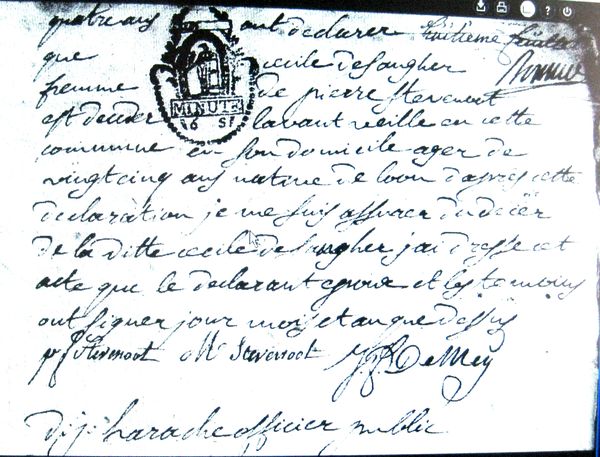 quatre ans ont declarer huitieme feuille
que cecile desangher
femme de pierre stevenoot
est deceder lavant veille en cette
MINUTE
commune en son domicile ager de
vingt cinq ans native de loon dapres cette
declaration je me suis assurer du deces
de la ditte cecile desangher jai dresse cet
acte que le declarant epoux et les temoins
ont signer jour mois et an que dessus
p j stevenoot M Stevenoot J F DeMey
D j j harache officier public